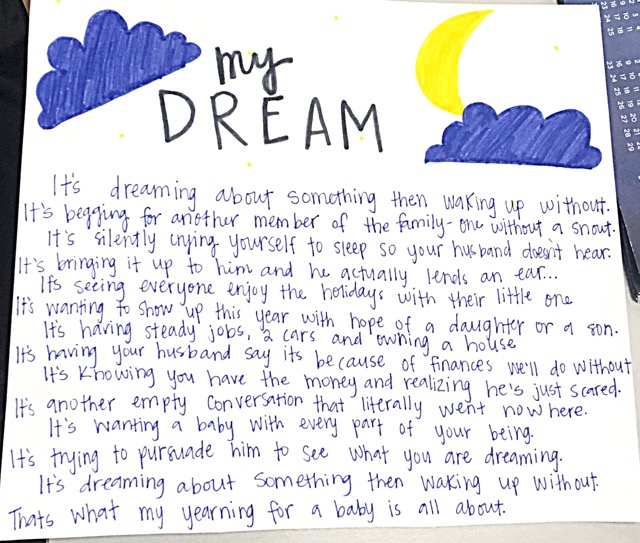 my
DREAM
It's dreaming about something then waking up without.
It's begging for another member of the family - one without a snout.
It's silently crying yourself to sleep so your husband doesn't hear.
It's bringing it up to him and he actually lends an ear...
It's seeing everyone enjoy the holidays with their little one
It's wanting to show up this year with hope of a daughter or a son.
It's having steady jobs, 2 cars and owning a house
It's having your husband say its because of finances we'll do without
It's knowing you have the money and realizing he's just scared.
It's another empty conversation that literally went nowhere.
It's wanting a baby with every part of your being.
It's trying to pursuade him to see what you are dreaming.
It's dreaming about something then waking up without.
Thats what my yearning for a baby is all about.